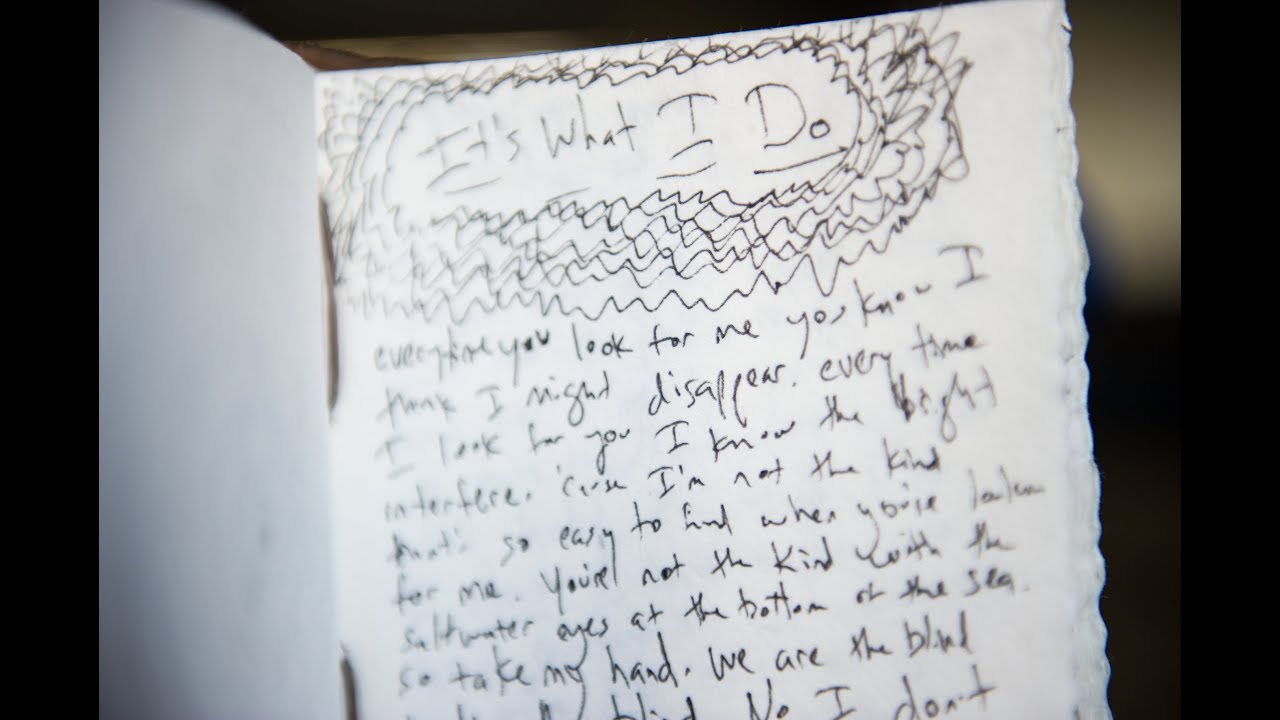 It's What I Do
everytime you look for me you know I
think I might disappear. every time
I look for you I know the bright
interfere. 'cause I'm not the kind
that's so easy to find when you're
for me. You're not the kind with the
saltwater eyes at the bottom of the sea.
so take my hand. We are the blind
blind. No I don't